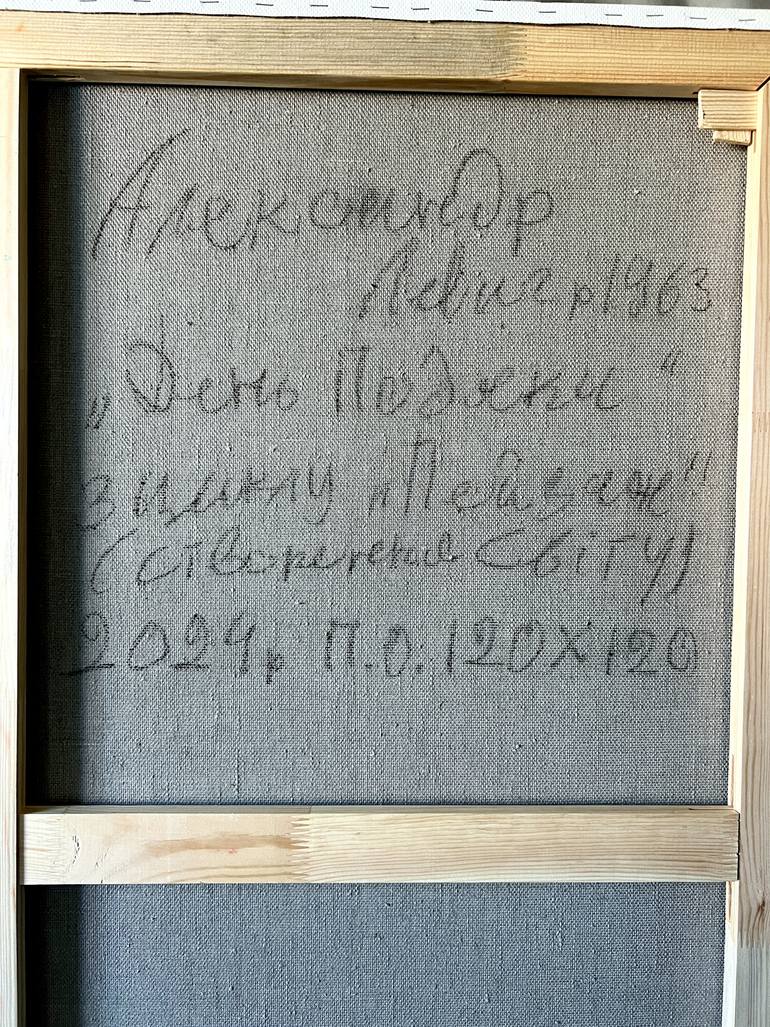 Александр
Левич р 1963
„День Подяки“
з циклу „Пейзаж“
(створення світу)
2024р П.О. 120х120